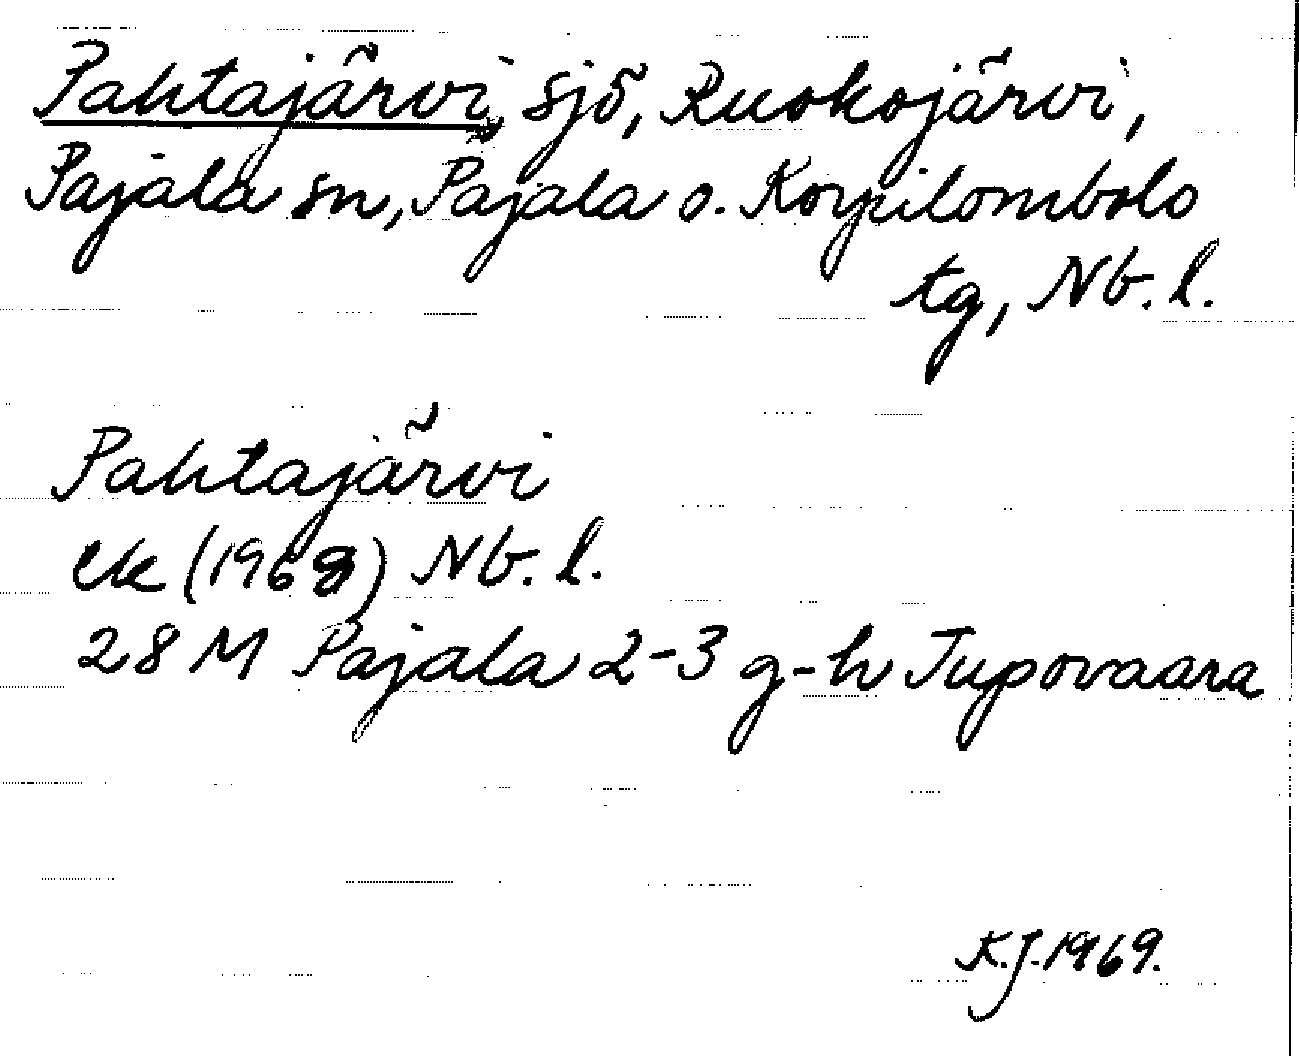 Pahtajärvi, sjö, Ruokojärvi,
Pajala sn, Pajala o. Korpilombolo
tg, Nb. l.
Pahtajärvi
ek (1968) Nb. l.
28 M Pajala 2-3 g-h Jupovaara
K.J. 1969.